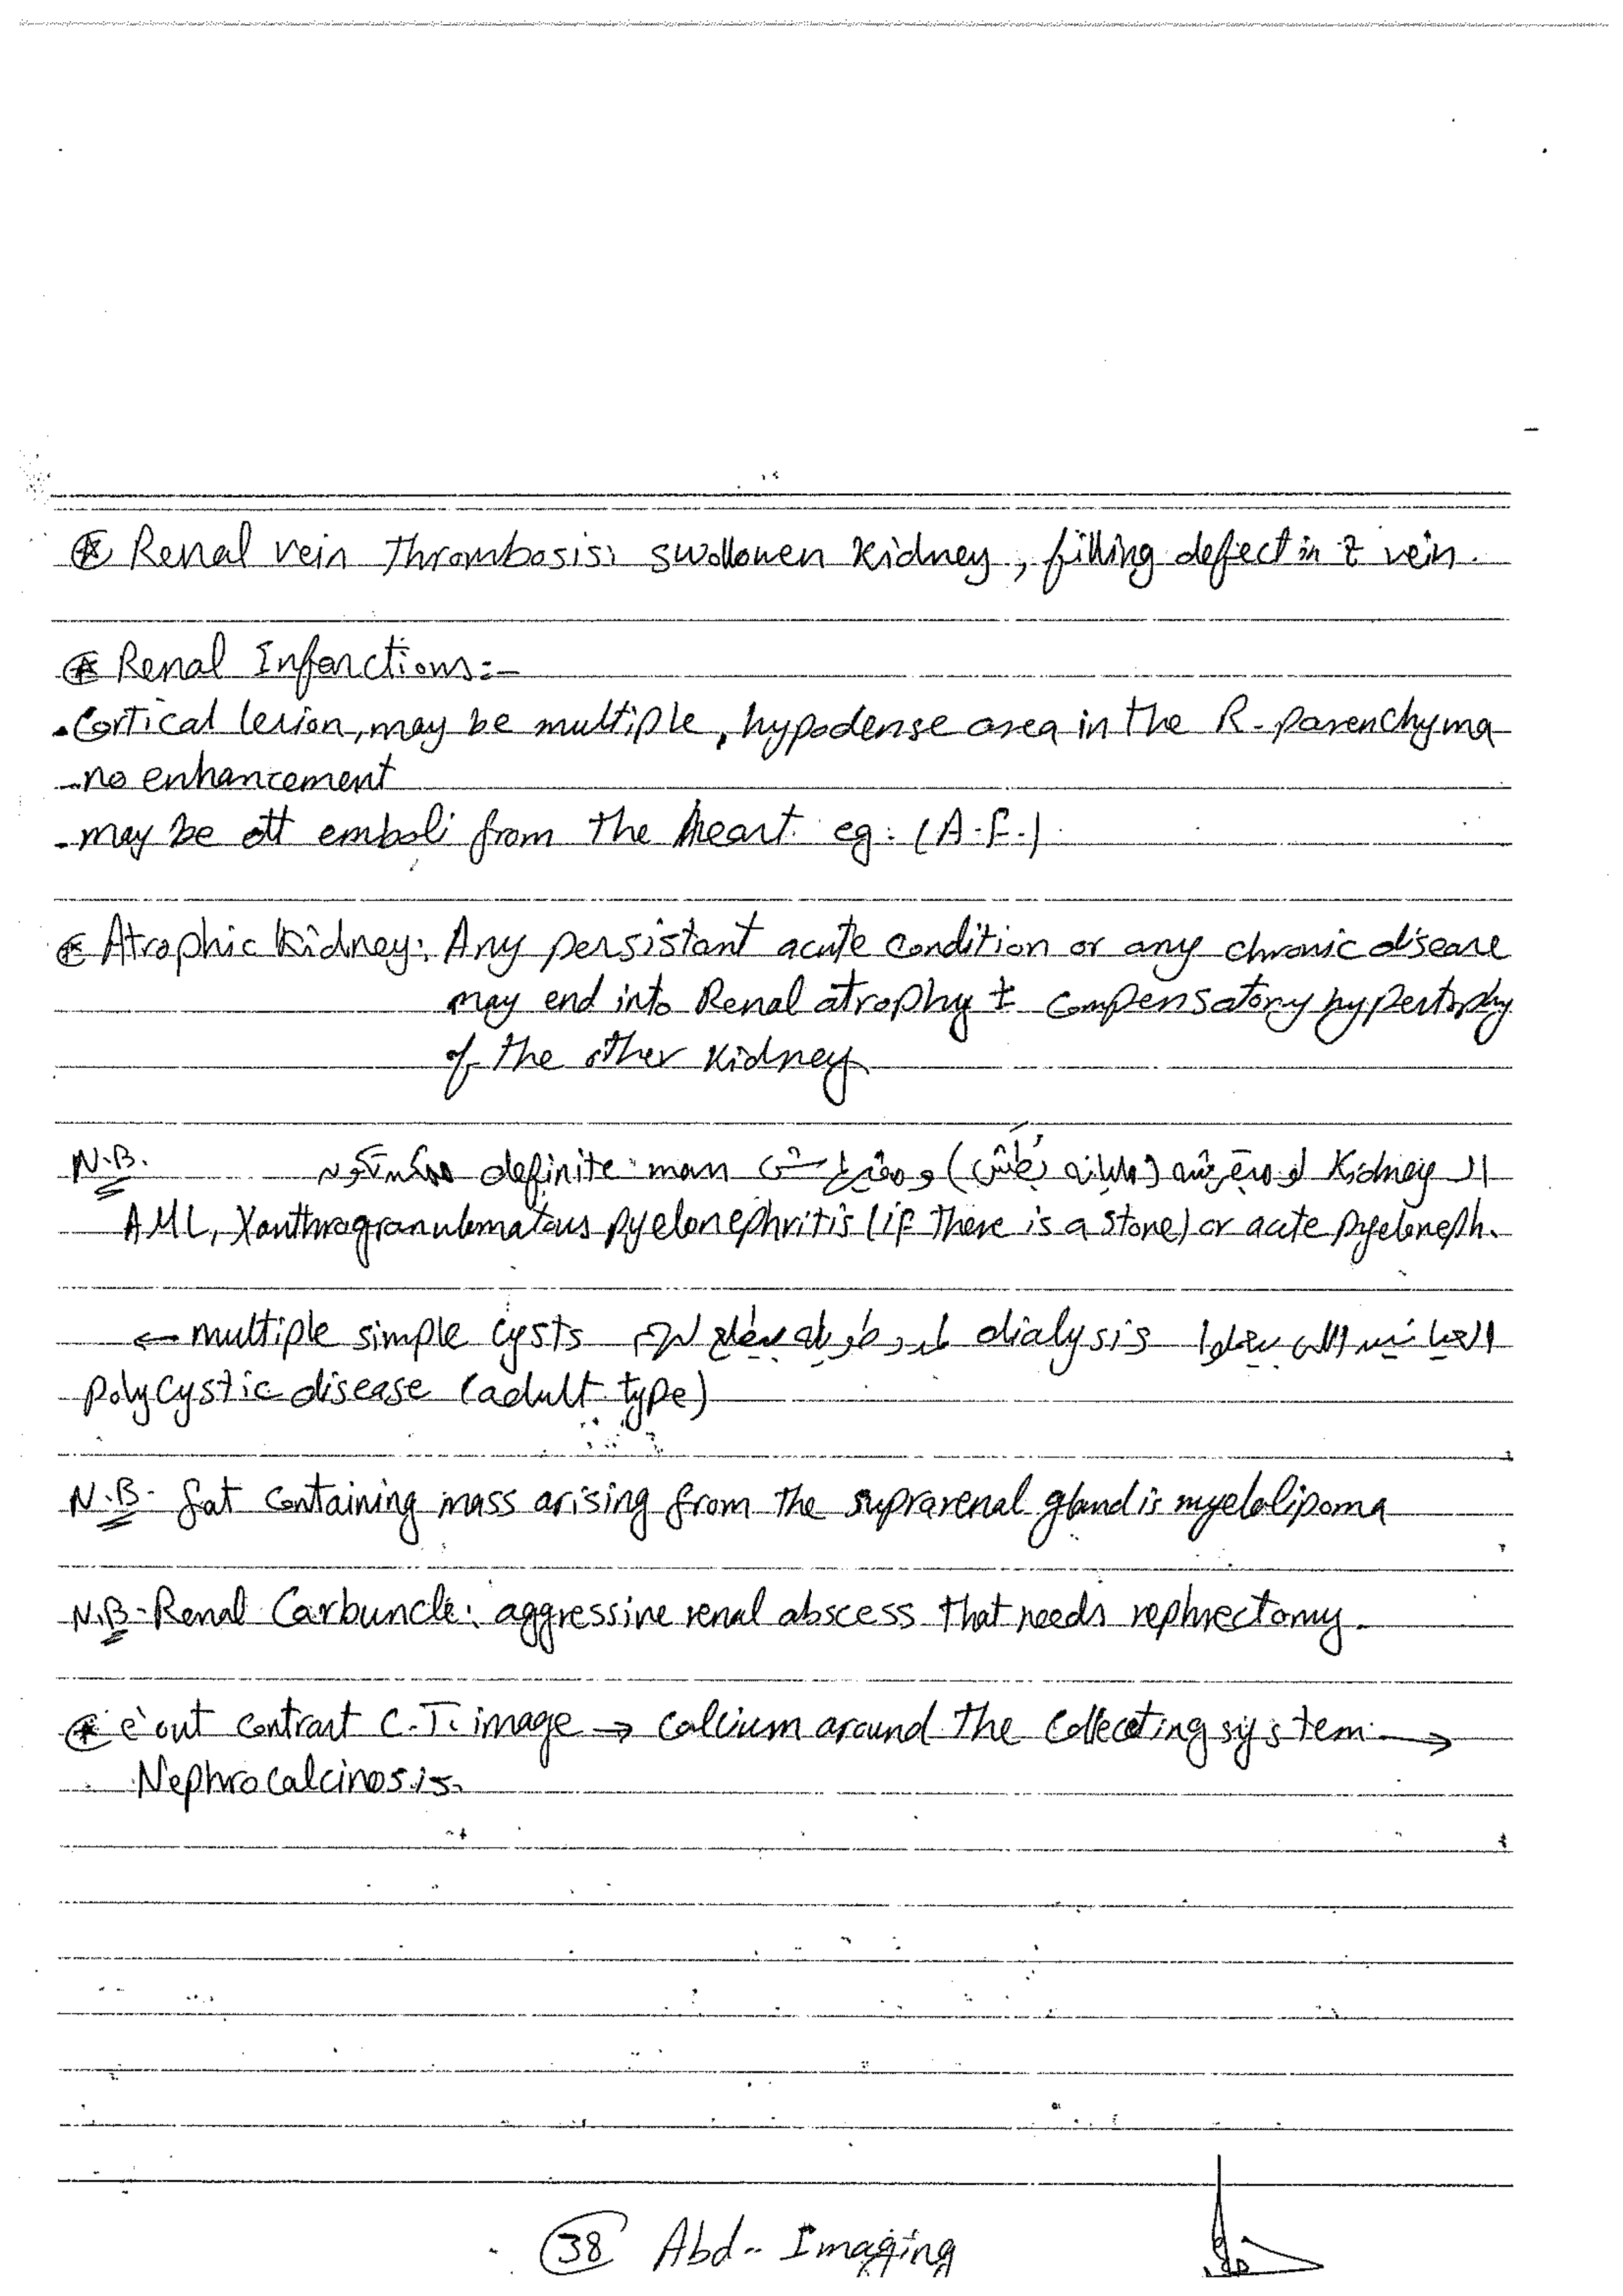 * Renal vein Thrombosis: swollowen Kidney, filling defect in z vein.
* Renal Infarctions:-
. Cortical lesion, may be multiple, hypodense area in the R-parenchyma
- no enhancement
- may be att emboli from the heart eg: (A.F.)
* Atrophic Kidney: Any persistant acute condition or any chronic disease
may end into Renal atrophy ± compensatory hypertophy
of the other Kidney
N.B. الـ Kidney لو definite man
AML, Xanthrogranulomatous pyelonephritis (if there is a stone) or acute pyeloneph.
dialysis ← multiple simple cysts
polycystic disease (adult type)
N.B- fat containing mass arising from the suprarenal gland is myelolipoma
N.B- Renal Carbuncle: aggressive renal abscess that needs nephrectomy.
* c̄out contrast C.T. image → calcium around the collecating system →
Nephrocalcinosis.
38 Abd- Imaging